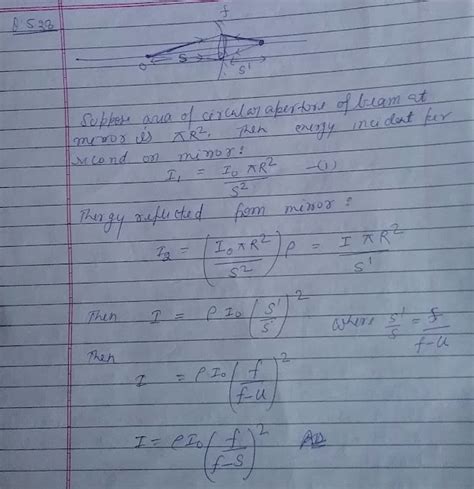 5.28
f
O S S'
Suppose area of circular aperture of beam at
mirror is πR², Then energy incident per
second on mirror:
I₁ = I₀ πR² / S² —(1)
Energy reflected from mirror:
I₂ = (I₀ πR² / S²) ρ = I πR² / S'
Then I = ρ I₀ (S'/S)² where S'/S = f/(f-u)
Then
I = ρ I₀ (f/(f-u))²
I = ρ I₀ (f/(f-S))²